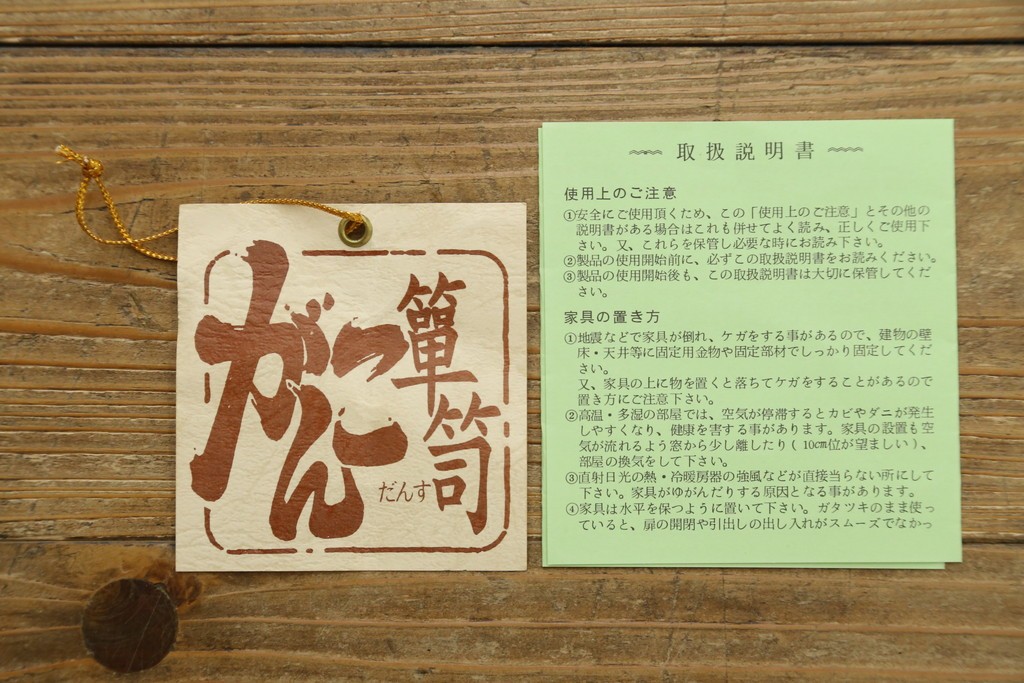 がんこ
簞笥
だんす
取扱説明書
使用上のご注意
①安全にご使用頂くため、この「使用上のご注意」とその他の
説明書がある場合はこれも併せてよく読み、正しくご使用下
さい。又、これらを保管し必要な時にお読み下さい。
②製品の使用開始前に、必ずこの取扱説明書をお読みください。
③製品の使用開始後も、この取扱説明書は大切に保管してくだ
さい。
家具の置き方
①地震などで家具が倒れ、ケガをする事があるので、建物の壁
床・天井等に固定用金物や固定部材でしっかり固定してくだ
さい。
又、家具の上に物を置くと落ちてケガをすることがあるので
置き方にご注意下さい。
②高温・多湿の部屋では、空気が停滞するとカビやダニが発生
しやすくなり、健康を害する事があります。家具の設置も空
気が流れるよう窓から少し離したり(10㎝位が望ましい)、
部屋の換気をして下さい。
③直射日光の熱・冷暖房器の強風などが直接当らない所にして
下さい。家具がゆがんだりする原因となる事があります。
④家具は水平を保つように置いて下さい。ガタツキのまま使っ
ていると、扉の開閉や引出しの出し入れがスムーズでなかっ